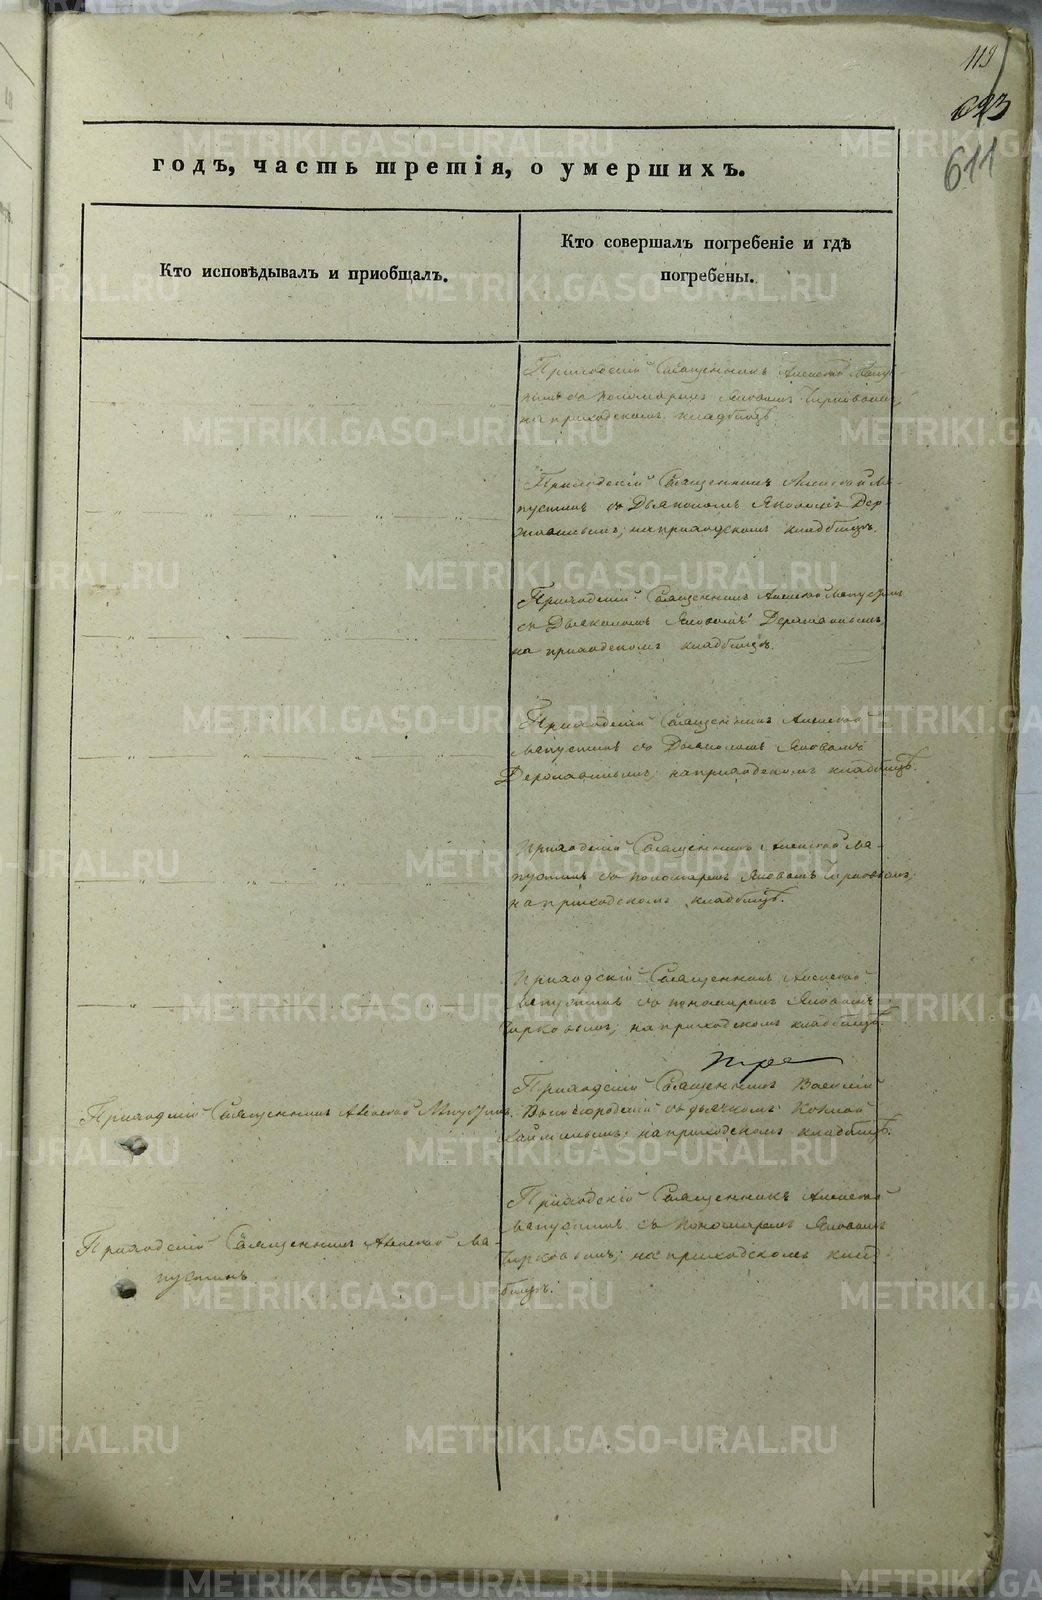 119
693
611
годъ, часть третія, о умершихъ.
Кто исповѣдывалъ и приобщалъ.
Кто совершалъ погребеніе и гдѣ
погребены.
Приходскій Священникъ Алексѣй Мапу-
стинъ съ пономаремъ Яковомъ Чирковымъ;
на приходскомъ кладбищѣ.
Приходскій Священникъ Алексѣй Ма-
пустинъ съ Дьякономъ Яковомъ Дер-
жавинымъ; на приходскомъ кладбищѣ.
Приходскій Священникъ Алексѣй Мапустинъ
съ Дьякономъ Яковомъ Державинымъ,
на приходскомъ кладбищѣ.
Приходскій Священникъ Алексѣй
Мапустинъ съ Дьякономъ Яковомъ
Державинымъ; на приходскомъ кладбищѣ.
Приходскій Священникъ Алексѣй Ма-
пустинъ съ пономаремъ Яковомъ Чирковымъ;
на приходскомъ кладбищѣ.
Приходскій Священникъ Алексѣй
Мапустинъ съ пономаремъ Яковомъ
Чирковымъ; на приходскомъ кладбищѣ.
Приходскій Священникъ Алексѣй Мапустинъ.
Приходскій Священникъ Василій
съ дьячкомъ Козмой
на приходскомъ кладбищѣ.
Приходскій Священникъ Алексѣй Ма-
пустинъ
Приходскій Священникъ Алексѣй
Мапустинъ съ пономаремъ Яковомъ
Чирковымъ; на приходскомъ клад-
бищѣ.
METRIKI.GASO-URAL.RU